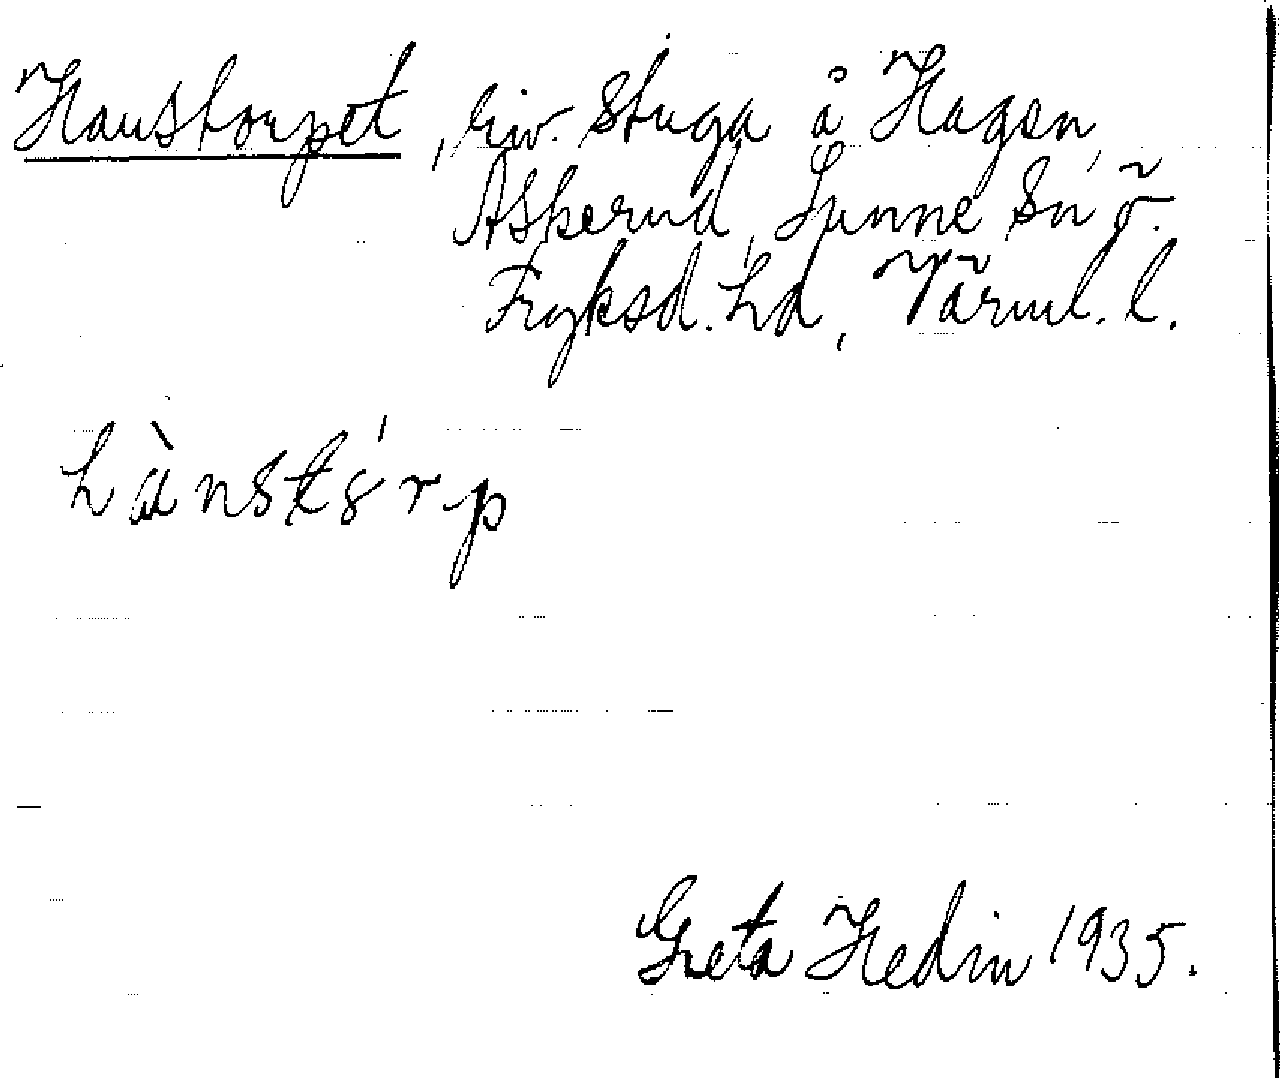 Hanstorpet, riv. stuga å Hagen,
Askerud, Sunne sn Ö.
Fryksd. hd, Värml. l.
hànstó̤rp
Greta Hedin 1935.